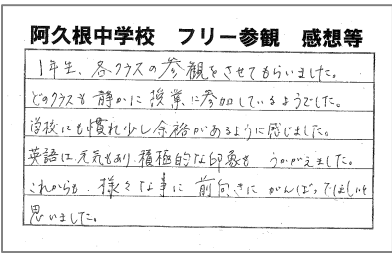 阿久根中学校 フリー参観 感想等
1年生、各クラスの参観をさせてもらいました。
どのクラスも静かに授業に参加しているようでした。
学校にも慣れ少し余裕があるように感じました。
英語は元気もあり、積極的な印象もうかがえました。
これからも、様々な事に前向きにがんばってほしいと
思いました。